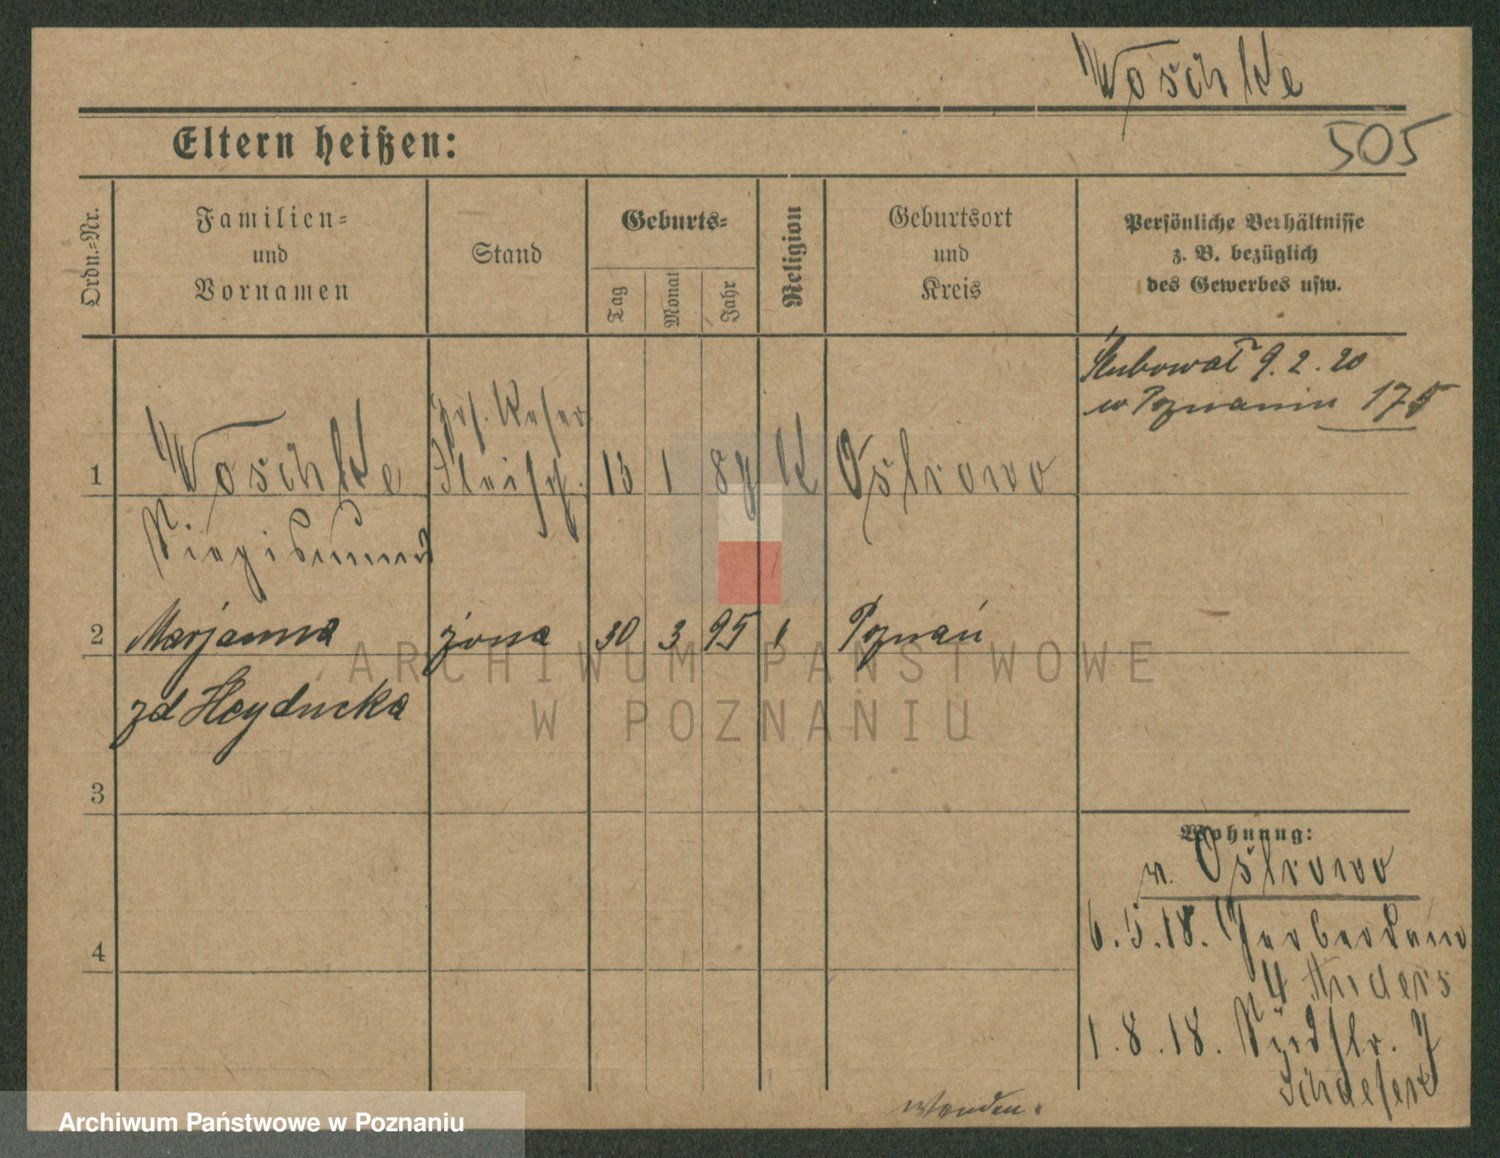 Woschke
Eltern heißen:
505
Ordn.-Nr.
Familien-
und
Vornamen
Stand
Geburts-
Tag
Monat
Jahr
Religion
Geburtsort
und
Kreis
Persönliche Verhältnisse
z. B. bezüglich
des Gewerbes usw.
Ślubował 9. 2. 20
w Poznaniu 175
1 Woschke Fleisch. 13 1 89 K Ostrowo
Siegismund
2 Marjanna żona 30 3 95 Poznań
zd Heyducka
3
4
Wohnung:
v. Ostrowo
6. 5. 18. Gerberdamm
4 Anders
1. 8. 18. Südstr. 7
Schaefer
wenden.
ARCHIWUM PAŃSTWOWE
W POZNANIU
Archiwum Państwowe w Poznaniu